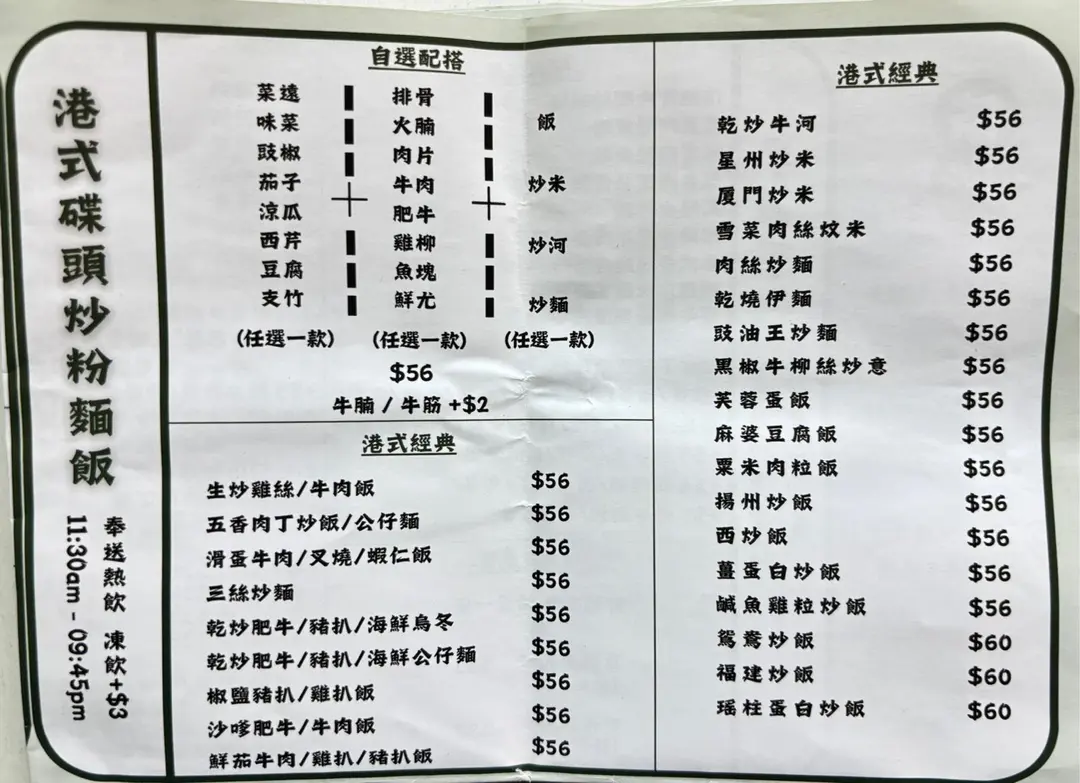 港式碟頭炒粉麵飯
奉送熱飲 凍飲+$3
11:30am - 09:45pm
自選配搭
菜遠 排骨 飯
味菜 火腩
豉椒 肉片
茄子 牛肉 炒米
涼瓜 肥牛
西芹 雞柳 炒河
豆腐 魚塊
支竹 鮮尤 炒麵
(任選一款) (任選一款) (任選一款)
$56
牛腩 / 牛筋 +$2
港式經典
生炒雞絲/牛肉飯 $56
五香肉丁炒飯/公仔麵 $56
滑蛋牛肉/叉燒/蝦仁飯 $56
三絲炒麵 $56
乾炒肥牛/豬扒/海鮮烏冬 $56
乾炒肥牛/豬扒/海鮮公仔麵 $56
椒鹽豬扒/雞扒飯 $56
沙嗲肥牛/牛肉飯 $56
鮮茄牛肉/雞扒/豬扒飯 $56
港式經典
乾炒牛河 $56
星州炒米 $56
厦門炒米 $56
雪菜肉絲炆米 $56
肉絲炒麵 $56
乾燒伊麵 $56
豉油王炒麵 $56
黑椒牛柳絲炒意 $56
芙蓉蛋飯 $56
麻婆豆腐飯 $56
粟米肉粒飯 $56
揚州炒飯 $56
西炒飯 $56
薑蛋白炒飯 $56
鹹魚雞粒炒飯 $56
鴛鴦炒飯 $60
福建炒飯 $60
瑤柱蛋白炒飯 $60